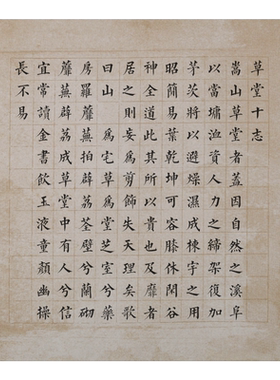 草堂十志
嵩山草堂者蓋因自然之溪阜
以當墉洫資人力之締架復加
茅茨將以避燥濕成棟宇之用
昭簡易葉乾坤可容膝休閑谷
神全道此其所以貴也及靡者
居之則妄為剪飾失天理矣歌
曰山為宅兮草為堂芝室兮藥
房羅蘼蕪拍薜荔荃壁兮蘭砌
蘼蕪薜荔成草堂中有人兮信
宜常讀金書飲玉液童顏幽操
長不易